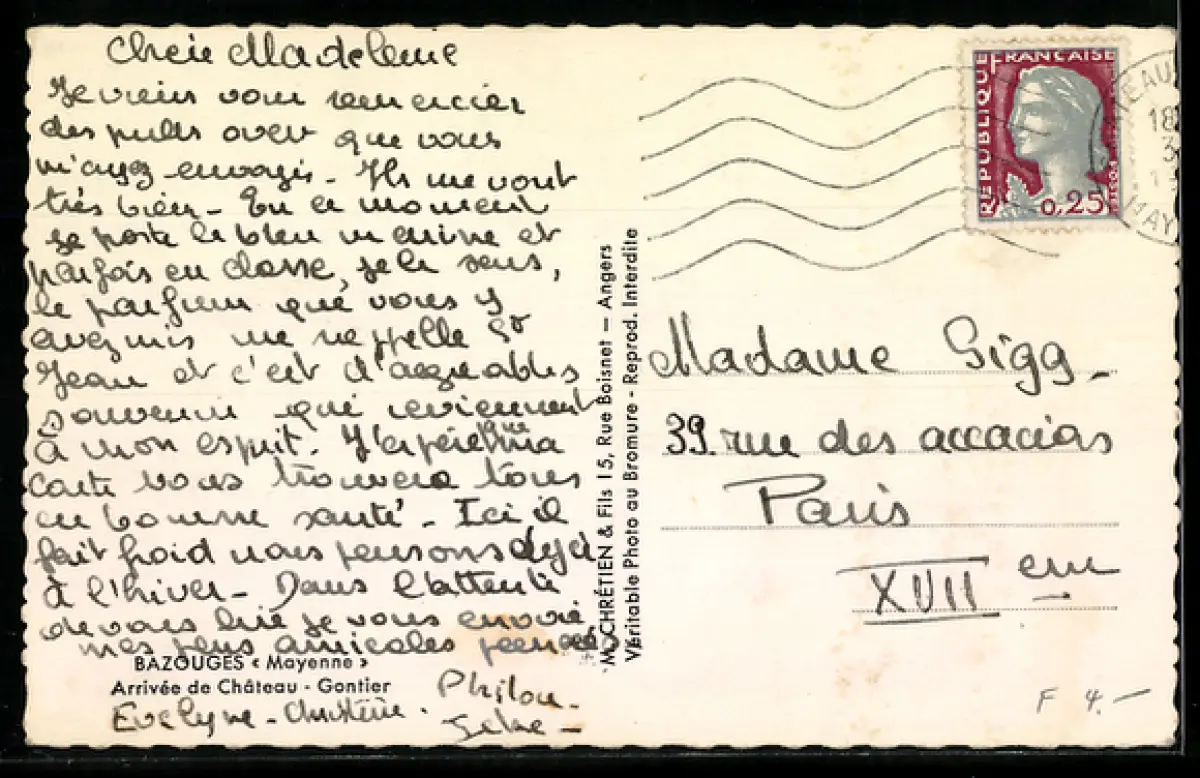 Chère Madeleine
Je viens vous remercier
des pulls over que vous
m'avez envoyés - Ils me vont
très bien - En ce moment
je porte le bleu marine et
parfois en classe, je le sens,
le parfum que vous y
avez mis me rappelle St
Jean et c'est d'agréables
souvenir qui reviennent
à mon esprit. J'espère que ma
carte vous trouvera tous
en bonne santé - Ici il
fait froid nous pensons déjà
à l'hiver - Dans l'attente
de vous lire je vous envoie
mes plus amicales pensées
BAZOUGES « Mayenne »
Arrivée de Château - Gontier
Evelyne - Christine - Philou -
M. CHRÉTIEN & Fils 15, Rue Boisnet — Angers
Véritable Photo au Bromure - Reprod. Interdite
RÉPUBLIQUE FRANÇAISE
0,25
18
3
MAY
Madame Sigg -
39 rue des accacias
Paris
XVII em
F 4.-